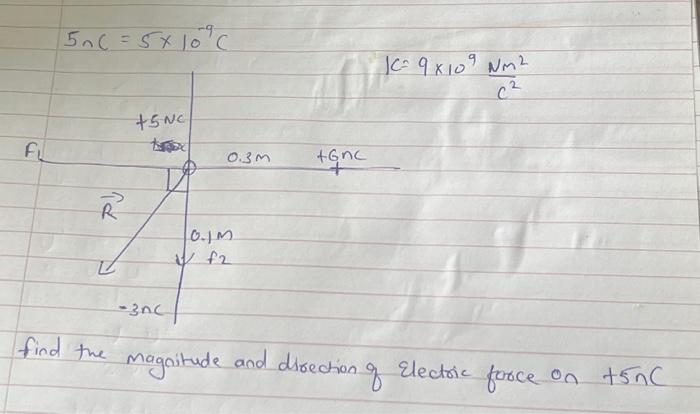 5nC = 5 × 10⁻⁹C
K = 9 × 10⁹ Nm²
C²
+5NC
F1
0.3M
+6nC
R
0.1M
f2
-3nC
find the magnitude and direction of Electric force on +5nC